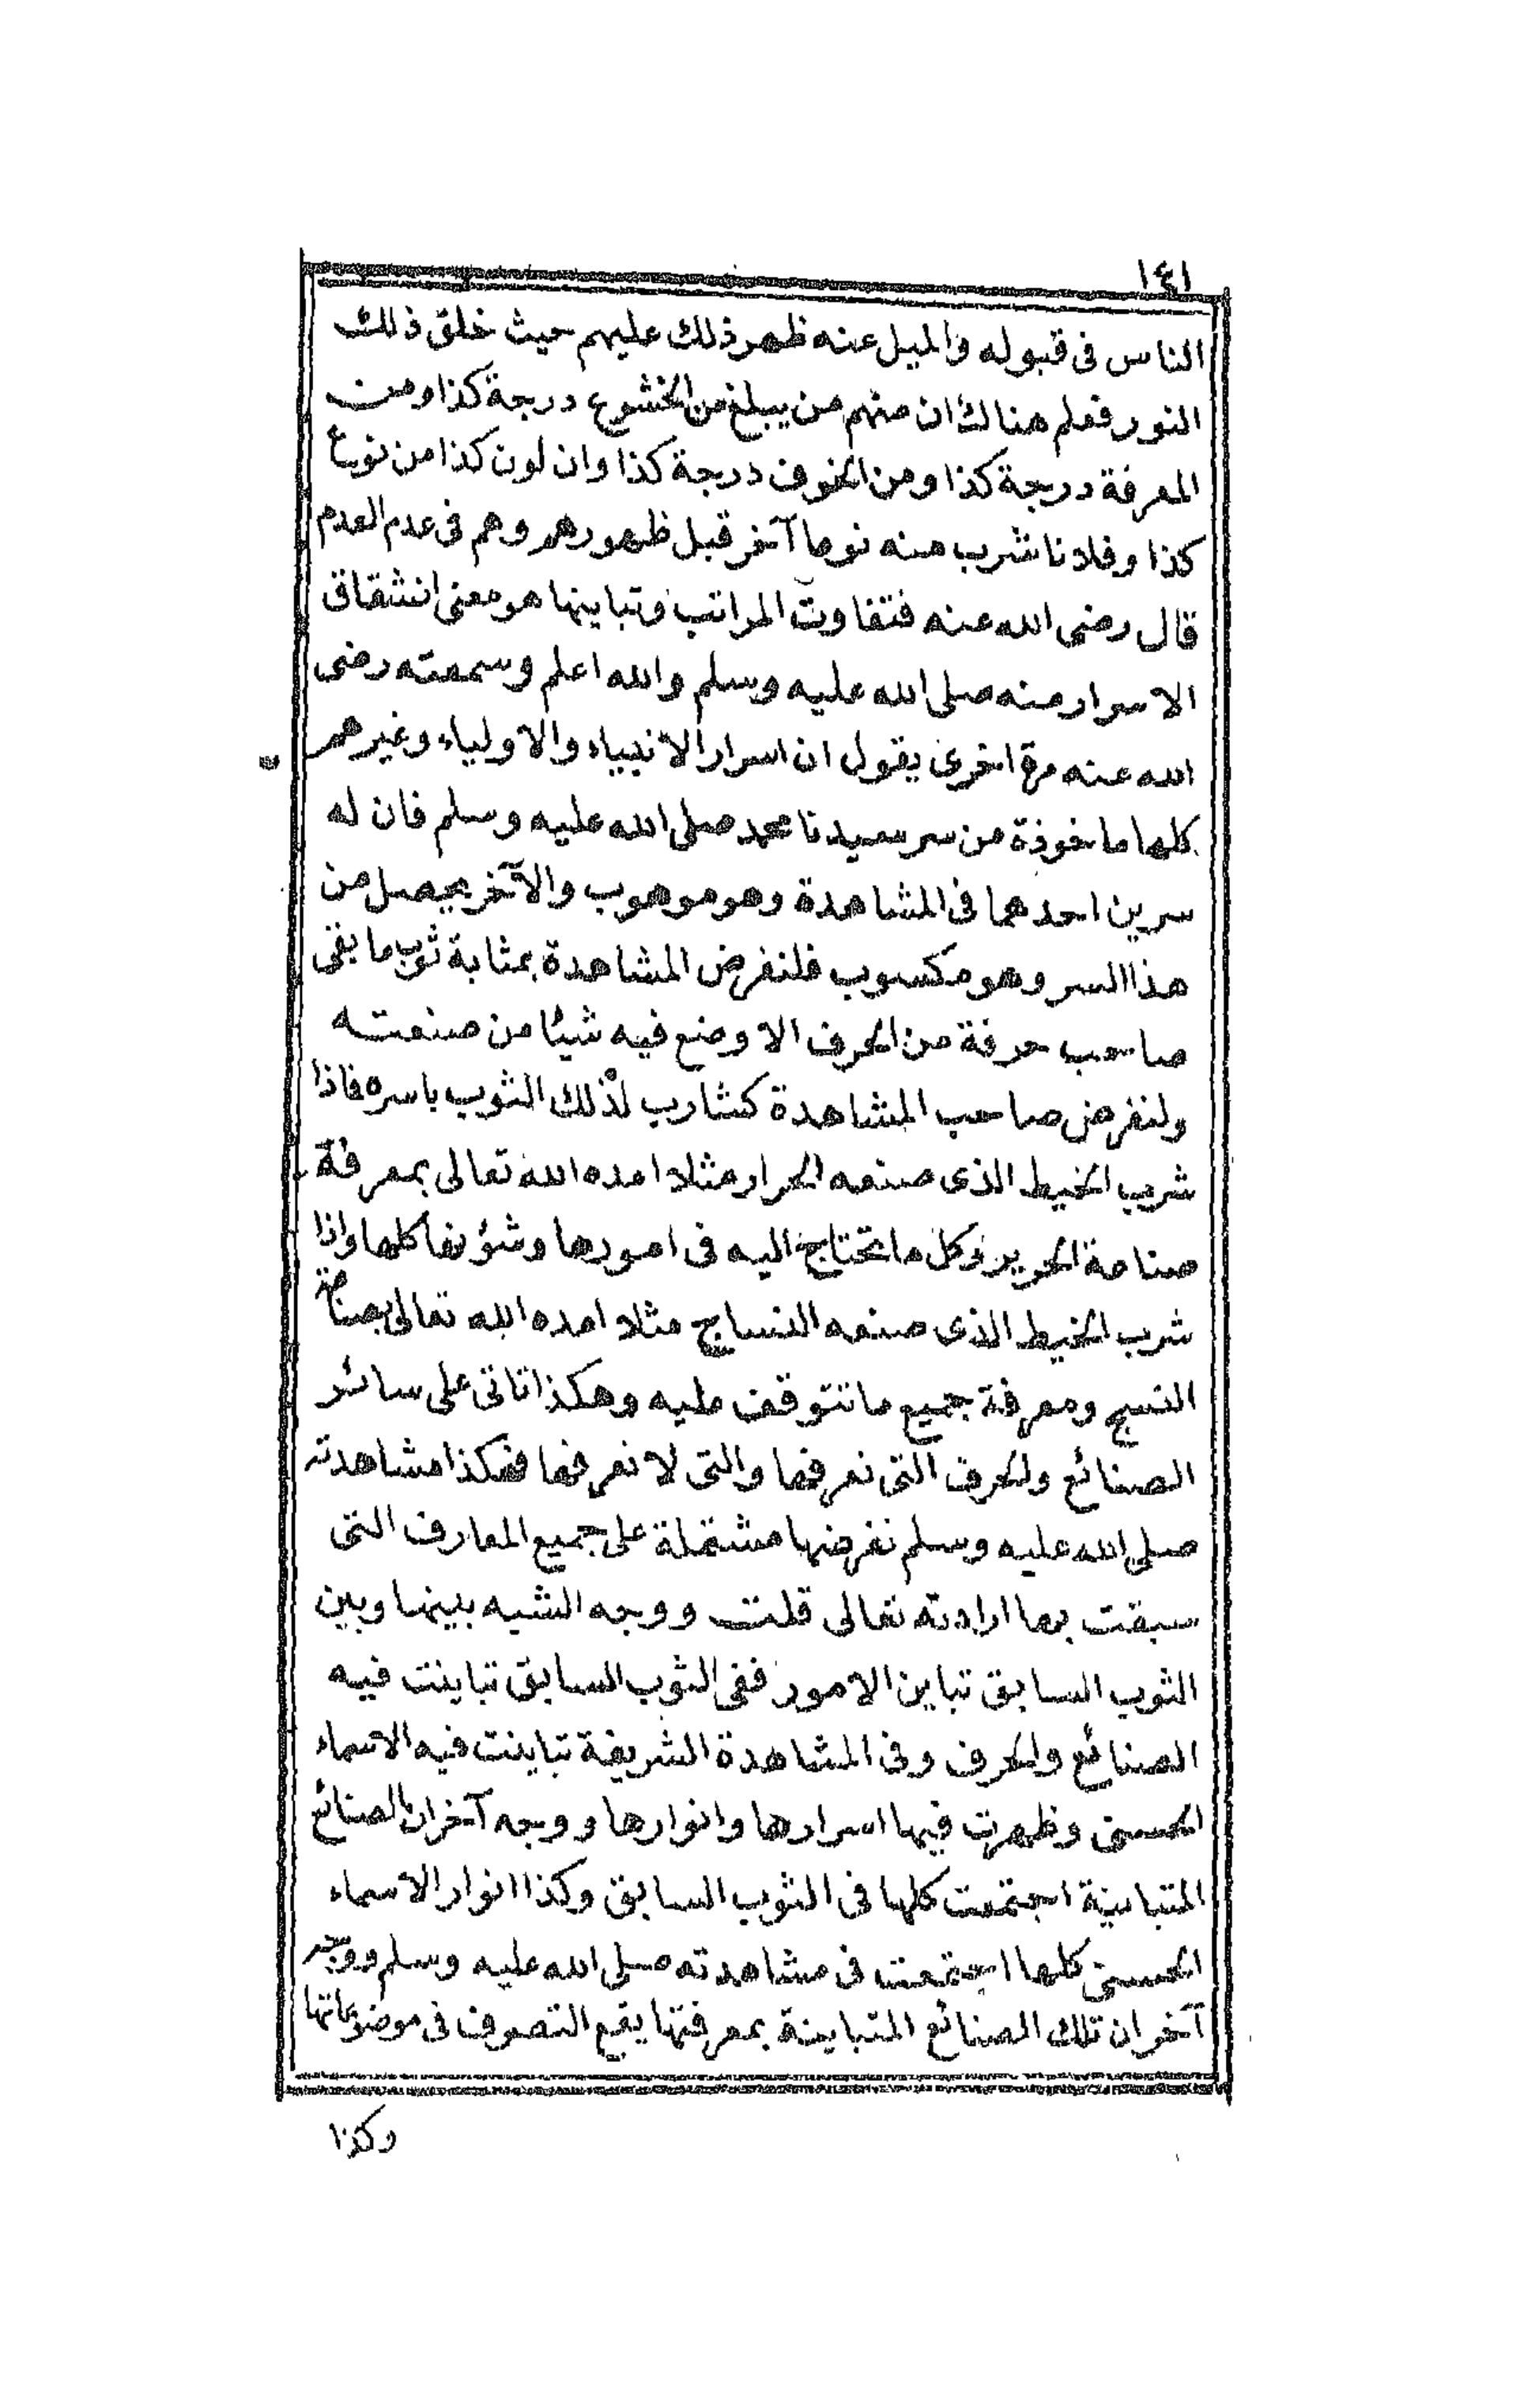 ١٤١
الناس فى قبوله والميل عنه ظهر ذلك عليهم حيث خلق ذلك
النور فعلم هنالك ان منهم من يبلغ من الخشوع درجة كذا ومن
المعرفة درجة كذا ومن الخوف درجة كذا وان لون كذا من نوع
كذا وفلانا شرب منه نوعا آخر قبل ظهورهم وهم فى عدم العدم
قال رضى الله عنه فتفاوت المراتب وتباينها هو معنى انشقاق
الاسرار منه صلى الله عليه وسلم والله اعلم وسمعته رضى
الله عنه مرة اخرى يقول ان اسرار الانبياء والاولياء وغيرهم
كلها ماخوذة من سر سيدنا محمد صلى الله عليه وسلم فان له
سرين احدهما فى المشاهدة وهو موهوب والآخر يحصل من
هذا السر وهو مكسوب فلنفرض المشاهدة بمثابة ثوب ما بقى
صاحب حرفة من الحرف الا وضع فيه شيئا من صنعته
ولنفرض صاحب المشاهدة كشارب لذلك الثوب باسره فاذا
شرب الخيط الذى صنعه الحرار مثلا امده الله تعالى بمعرفة
صناعة الحرير وكل ما تحتاج اليه فى امورها وشؤنها كلها واذا
شرب الخيط الذى صنعه النساج مثلا امده الله تعالى بصناعة
النسج ومعرفة جميع ما تتوقف عليه وهكذا تاتى على سائر
الصنائع والحرف التى نعرفها والتى لا نعرفها فهكذا مشاهدته
صلى الله عليه وسلم نفرضها مشتملة على جميع المعارف التى
سبقت بها ارادته تعالى قلت ووجه الشبه بينها وبين
الثوب السابق تباين الامور ففى الثوب السابق تباينت فيه
الصنائع والحرف وفى المشاهدة الشريفة تباينت فيه الاسماء
الحسنى وظهرت فيها اسرارها وانوارها ووجه آخر ان الصنائع
المتباينة اجتمعت كلها فى الثوب السابق وكذا انوار الاسماء
الحسنى كلها اجتمعت فى مشاهدته صلى الله عليه وسلم ووجه
آخر ان تلك الصنائع المتباينة بمعرفتها يقع التصرف فى موضوعاتها
وكذا